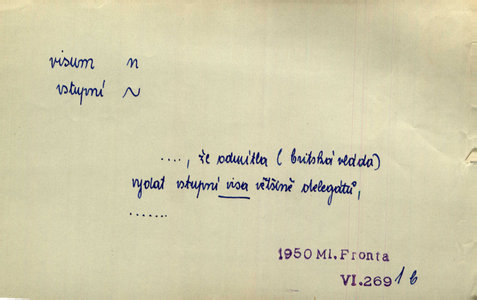 visum n
vstupní ~
...., že odmítla (britská vláda)
vydat vstupní visa většině delegátů,
.......
1950 Ml. Fronta
VI.269 1 b